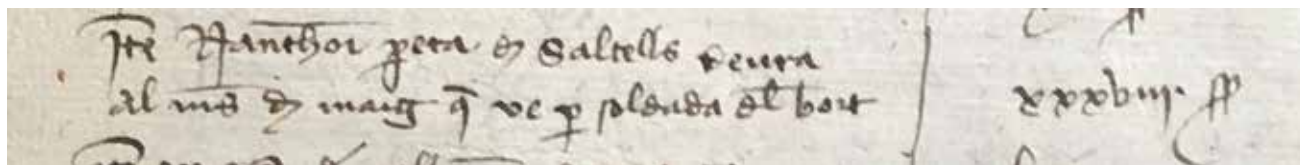 Itē Nanthōi ꝑera d Saltells deura
al mēs d maig q̄ ve ꝑ soldada dl bort xxxviij. ss